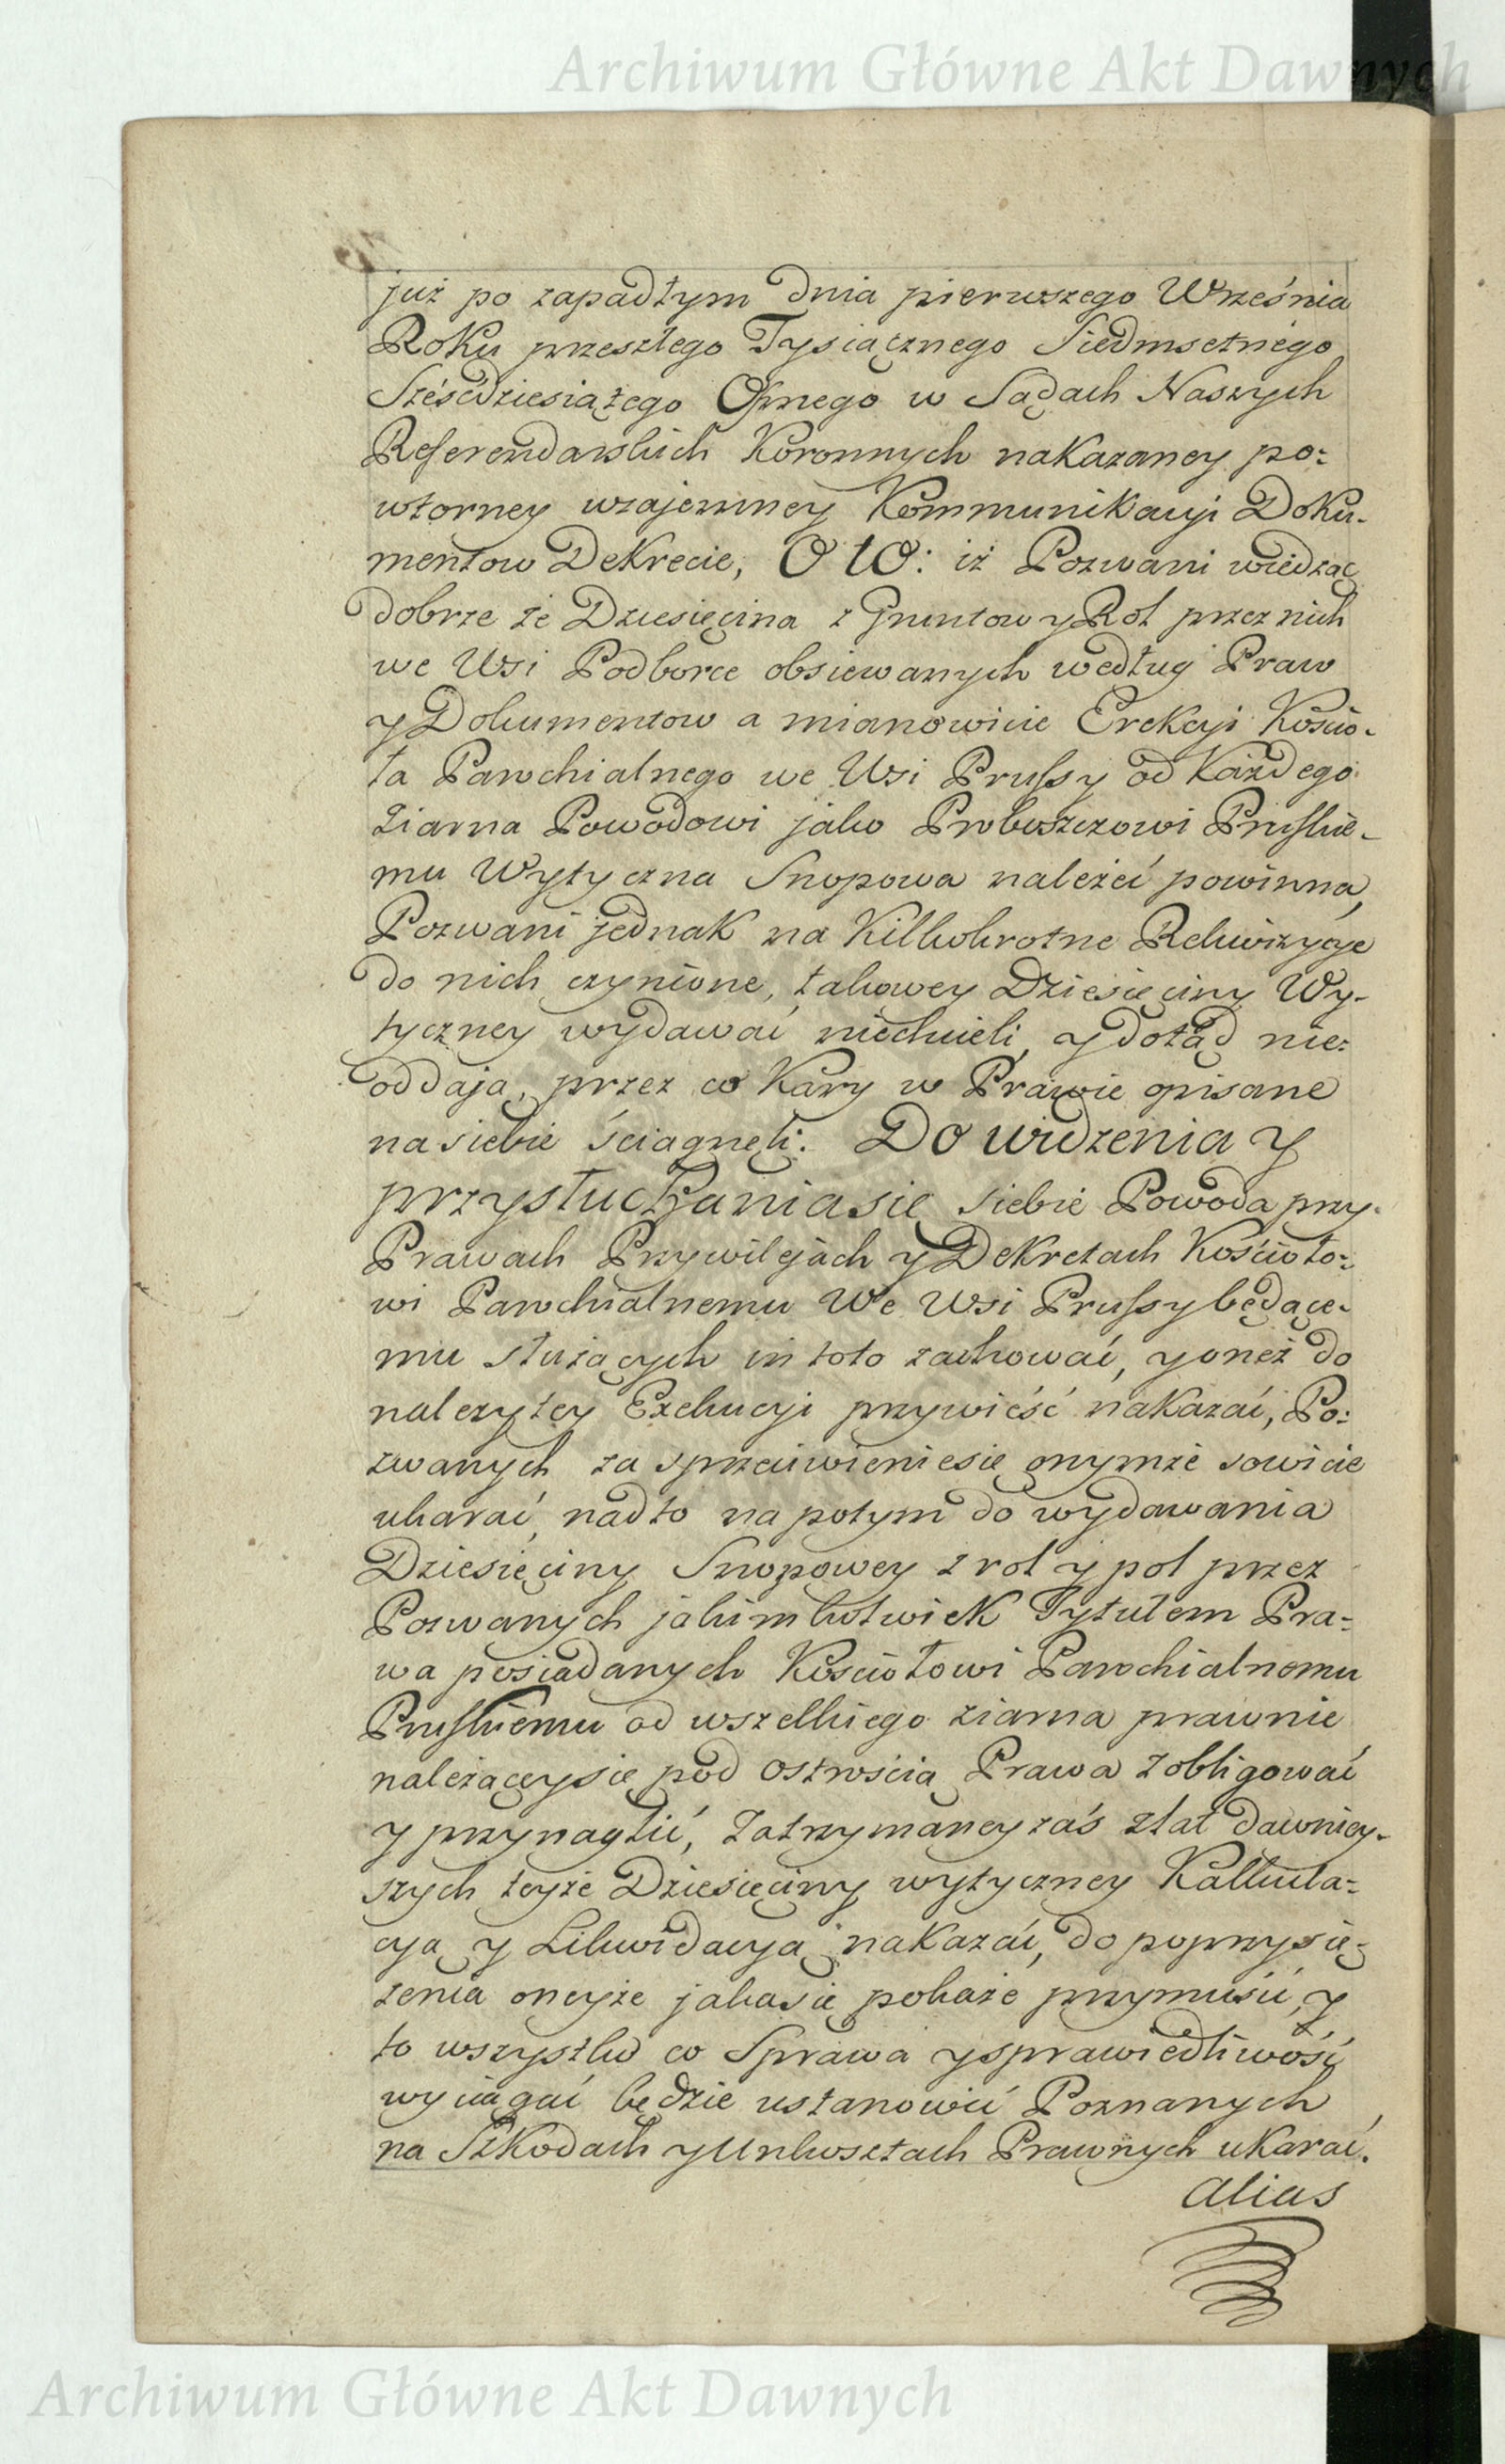 Archiwum Główne Akt Dawnych
już po zapadłym dnia pierwszego Września
Roku przeszłego Tysiącznego Siedmsetnego
Sześćdziesiątego Osmego w Sądach Naszych
Referendarskich Koronnych nakazaney po:
wtorney wzajemney Kommunikacyi Doku-
mentow Dekrecie, O to: iż Pozwani wiedząc
dobrze że Dziesięcina z Gruntow y Rol przez nich
we Wsi Podborce obsiewanych według Praw
y Dokumentow a mianowicie Erekcyi Kościo-
ła Parochialnego we Wsi Prussy od każdego
ziarna Powodowi jako Proboszczowi Pruskie-
mu Wytyczna Snopowa należeć powinna,
Pozwani jednak na kilkokrotne Rekwizycye
do nich czynione, takowey Dziesięciny Wy-
tyczney wydawać niechcieli, y dotąd nie:
oddają, przez co kary w Prawie opisane
na siebie ściągneli: Do widzenia y
przysłuchania się siebie Powoda przy-
Prawach Przywilejach y Dekretach Kościoło:
wi Parochialnemu We Wsi Prussy będące-
mu służących in toto zachować, y oneż do
należytey Exekucyi przywieść nakazać, Po:
zwanych za sprzeciwienie się onymże sowicie
ukarać, nadto na potym do wydawania
Dziesięciny Snopowey z rol y pol przez
Pozwanych jakimkolwiek Tytułem Pra-
wa posiadanych Kościołowi Parochialnemu
Pruskiemu od wszelkiego ziarna prawnie
należącey się pod ostrością Prawa zobligować
y przynaglić, Zatrzymaney zaś z lat dawniey-
szych teyże Dziesięciny wytyczney Kalkula-
cyą y Likwidacyą nakazać, do poprzysię-
żenia oneyże jaka się pokaże przymusić, y
to wszystko co Sprawa y sprawiedliwość
wyciągać będzie ustanowić Poznanych
na Szkodach y Unkosztach Prawnych ukarać.
alias
Archiwum Główne Akt Dawnych